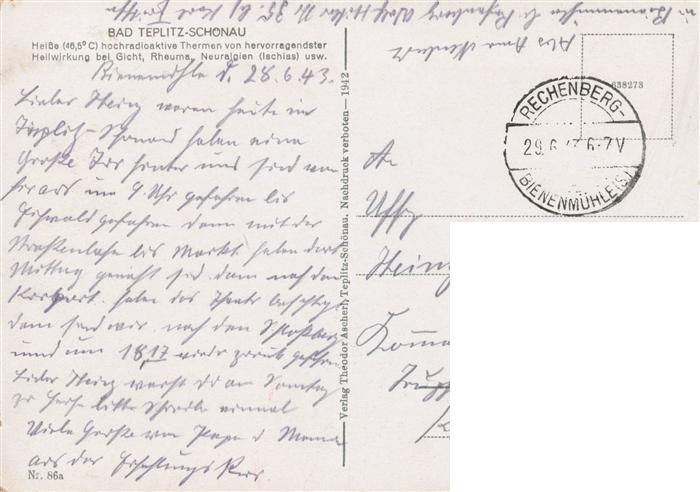 BAD TEPLITZ-SCHÖNAU
Heiße (46,5° C) hochradioaktive Thermen von hervorragendster
Heilwirkung bei Gicht, Rheuma, Neuralgien (Ischias) usw.
Bienenmühle d. 28.6.43.
Lieber Heinz waren heute in
Teplitz-Schönau haben eine
Große Tour hinter uns sind von
hir aus um 9 Uhr gefahren bis
Eichwald gefahren dann mit der
Straßenbahn bis Markt haben dort
Mittag gemacht sind dann nach dem
Kurpark. haben das Theater besichtigt
dann sind wir nach den Schloßberg
und um 18,17 wieder zurück gefahren
Lieber Heinz warst du am Sonntag
zu Hause bitte schreibe einmal
Viele Grüße von Papa u Mama
aus der Erholungs
Nr. 86a
Verlag Theodor Ascherl, Teplitz-Schönau. Nachdruck verboten — 1942
638273
RECHENBERG-
29.6.43 6-7V
BIENENMÜHLE(S)
An
Uffz
Heinz